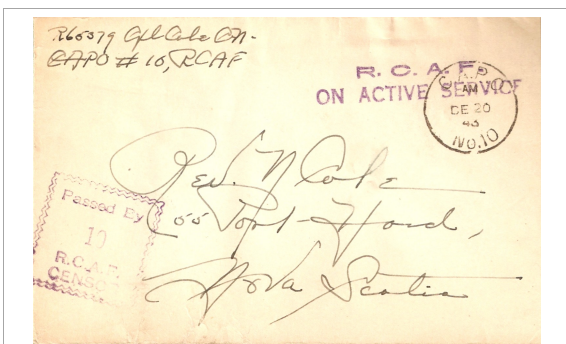 R65579 Cpl Cole C.A.
CAPO # 10, RCAF
R. C. A. F.
ON ACTIVE SERVICE
C.A.P.O
AM
DE 20
43
NO.10
Rev. N Cole
Port
Nova Scotia
Passed By
10
R.C.A.F.
CENSOR